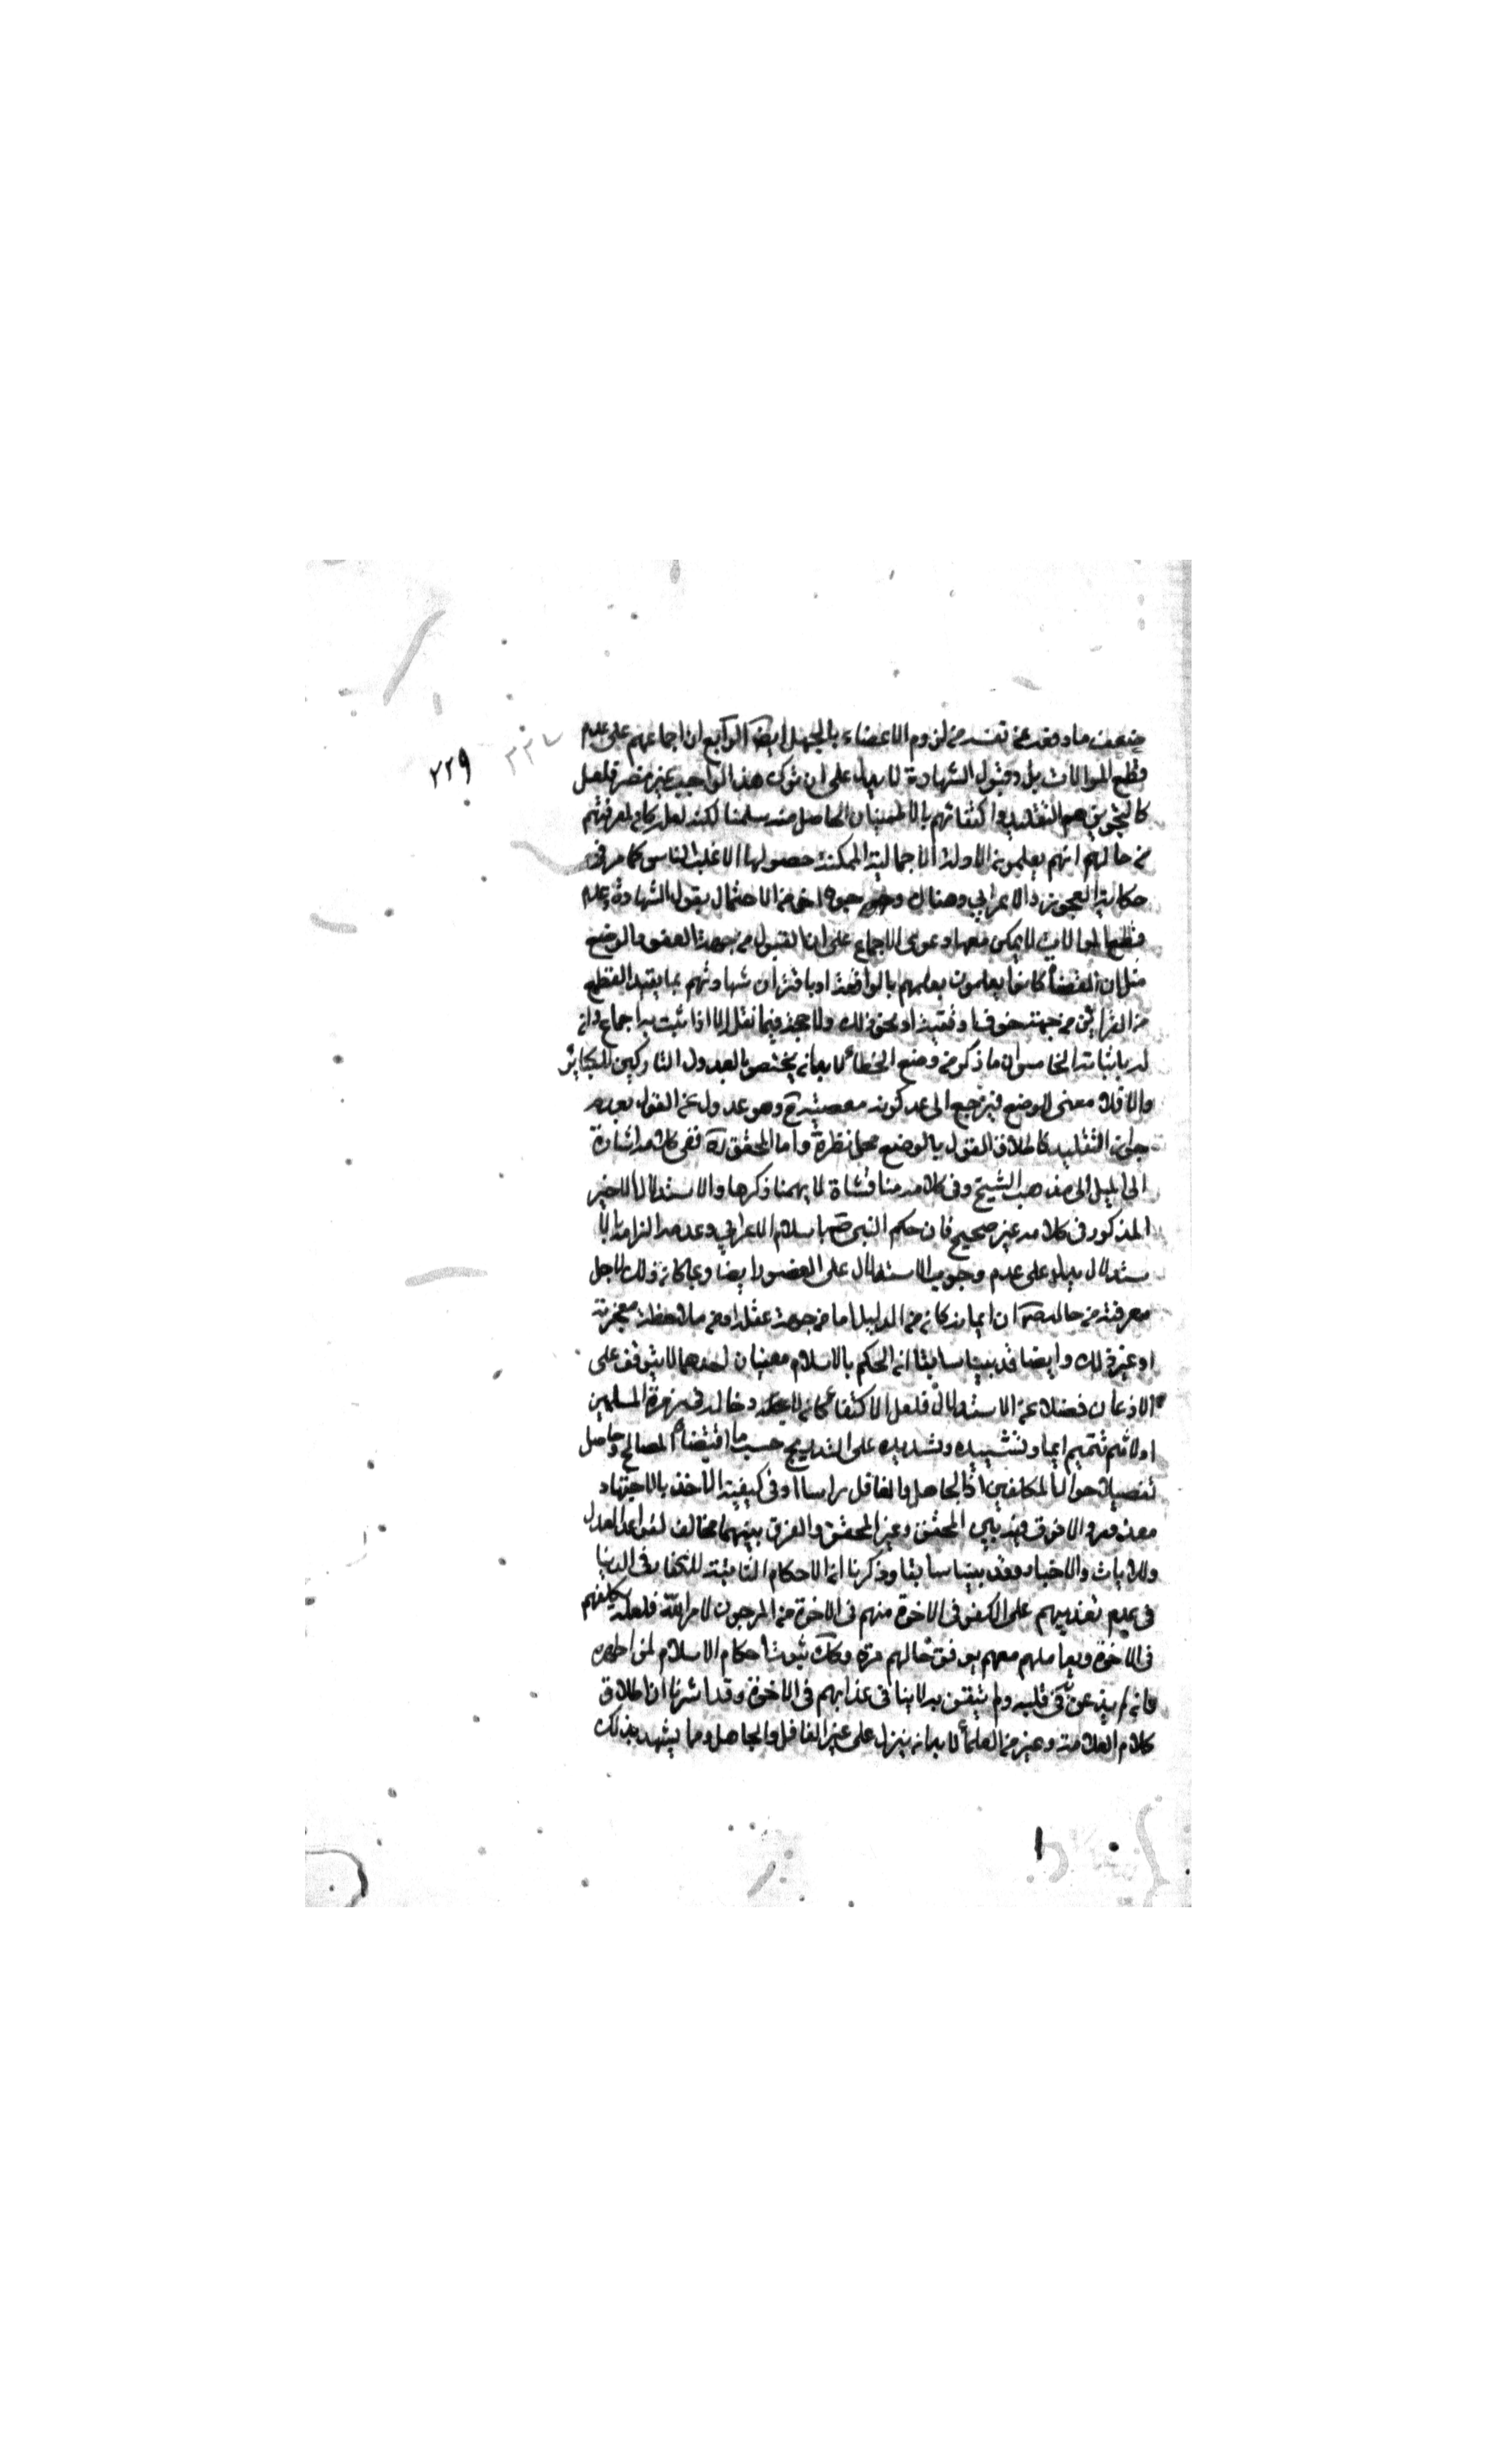 ضعف ما دفعت عن نفسه من لزوم الاغضاء بالجهل ايضا الرابع ان اجماعهم على عدم
قطع الموالات بل وقبول الشهادة لا يدل على ان ترك هذا الواجب غير مضر فلعل
كالتجويزهم التقليد واكتفائهم بالاطمينان الحاصل منه سلمنا لكنه لعله كان لمعرفتهم
من حالهم انهم يعلمون الادلة الاجمالية الممكنة حصولها لاغلب الناس كما مر في
حكاية العجوز والاعرابي وهناك وجوه اخر من الاحتمال بقبول الشهادة وعدم
قطع الموالات لا يمكن معها دعوى الاجماع على ان القبول من جهة العفو والوضع
مثل ان القضاة كانوا يعملون بعلمهم بالواقعة او باقتران شهادتهم بما يفيد القطع
من القرائن من جهة خوف او تقية او نحو ذلك ولا حجة فيما نقل الا اذا ثبت به اجماع وانى
له باثباته الخامس ان ما ذكره من وضع الخطأ لا بد انه يختص بالعدول التاركين للكبائر
والا فلا معنى للوضع فيرجع الى عدم كونه معصية ح وهو عدول عن القول بعدم
جواز التقليد فاطلاق القول بالوضع محل نظره واما المحقق ره ففي كلامه اشارة
الى الميل الى مذهب الشيخ وفي كلامه مناقشاة لا يهمنا ذكرها والاستدلال الاخير
المذكور في كلامه غير صحيح فان حكم النبي ص باسلام الاعرابي وعدم الزامه بالا
ستدلال يدل على عدم وجوب الاستدلال على الفضول ايضا وربما كان ذلك لاجل
معرفته من حاله ص ان ايمانه كان من الدليل اما من جهة عقله او من ملاحظة معجزته
او غير ذلك وايضا قد بينا سابقا ان الحكم بالاسلام معنيان احدهما لا يتوقف على
الاذعان فضلا عن الاستدلال فلعل الاكتفاء كان لاجل دخاله في زمرة المسلمين
اولا ثم تتميم ايمانه وتشييده وتسديده على التدريج حسب ما اقتضاه المصالح وحاصل
تفصيل احوال المكلفين ان الجاهل والغافل راسا او في كيفية الاخذ بالاجتهاد
معذور والا فرق فيه بين المحقق وغير المحقق والفرق بينهما مخالف لقواعد العدل
وللايات والاخبار وقد بينا سابقا وذكرنا ان الاحكام الثابتة للكفار في الدنيا
في عدم تعذيبهم على الكفر في الاخرة منهم في الاخرة من المرجون لامر الله فلعله يكلفهم
في الاخرة ويعاملهم معهم بوفق حالهم مرة وكك ثبوت احكام الاسلام لمن اظهره
وان لم يذعن في قلبه ولم يتيقن به لا ينافي عذابهم في الاخرة وقد اشرنا ان اطلاق
كلام العلامة وغيره من العلماء لا بد انه ينزل على غير الغافل والجاهل ومما يشهد بذلك
٢٢٩